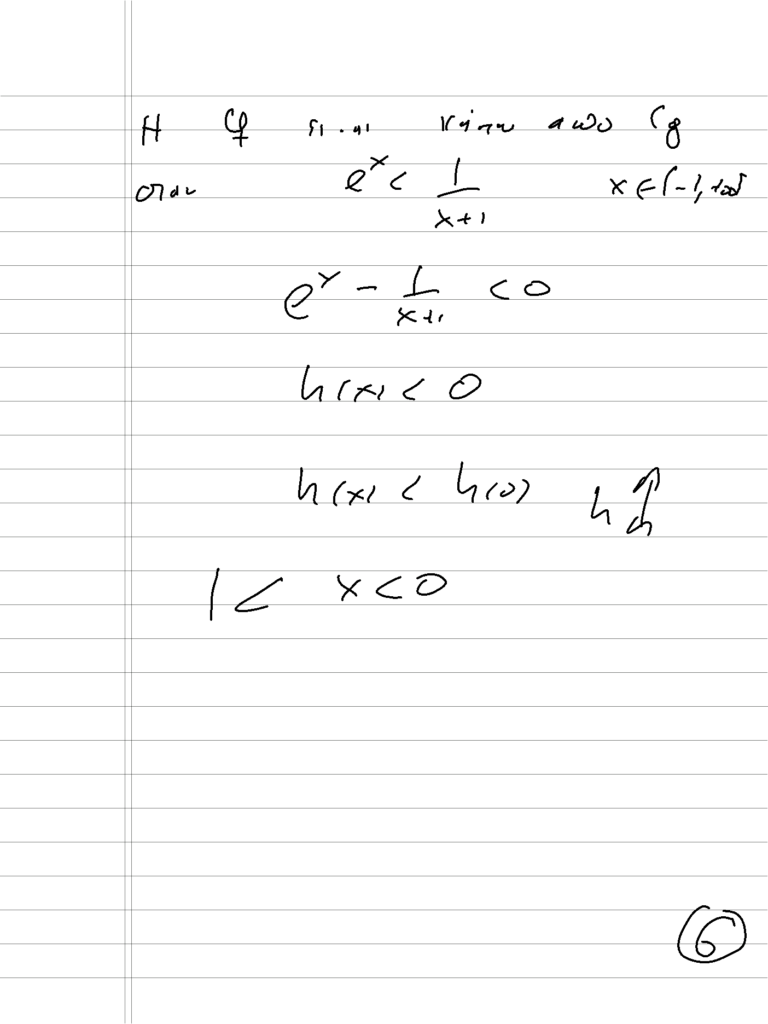 Η Cf είναι κάτω από Cg
όταν e^x < 1/(x+1) x ∈ (-1, +∞)
e^x - 1/(x+1) < 0
h(x) < 0
h(x) < h(0) h↑
1< x<0
6